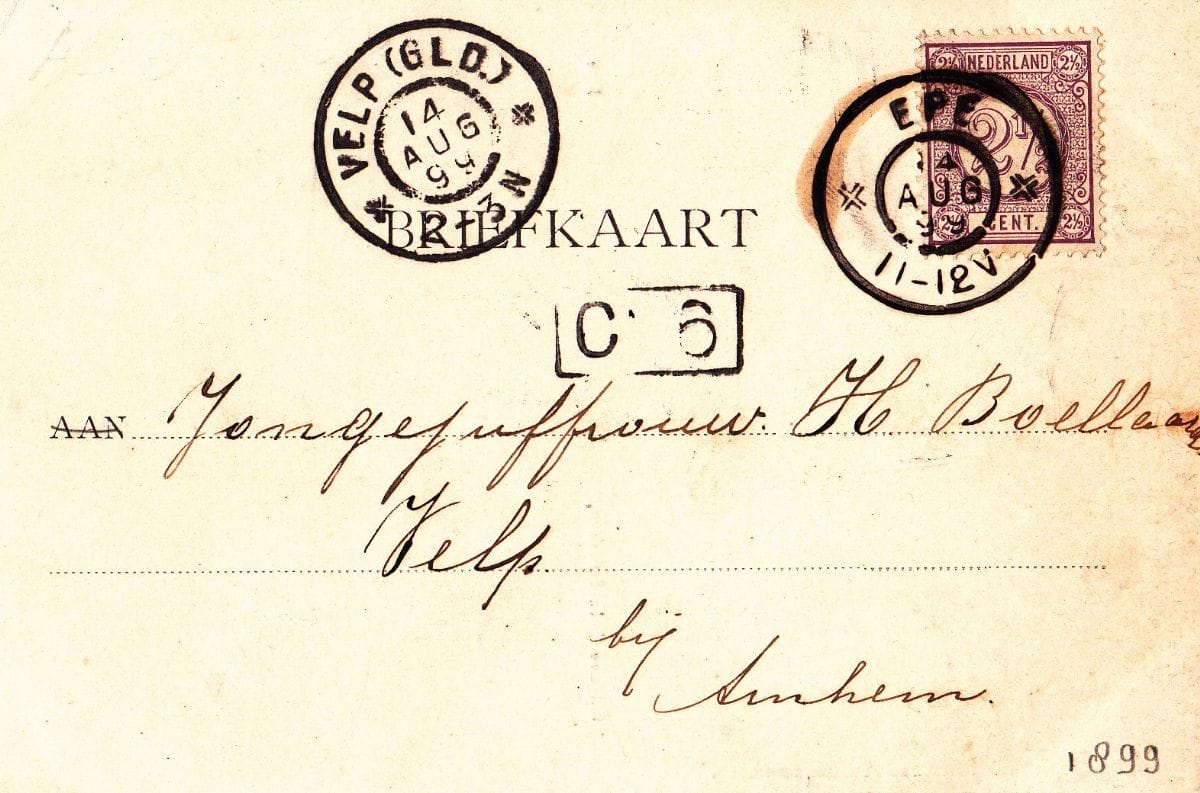 VELP (GLD.)
14
AUG
99
2-3N
2½ NEDERLAND 2½
2½
2½ CENT. 2½
EPE
14
AUG
99
11-12V
BRIEFKAART
C 6
AAN Jongejuffrouw. H. Boellaard
Velp.
bij
Arnhem.
1899